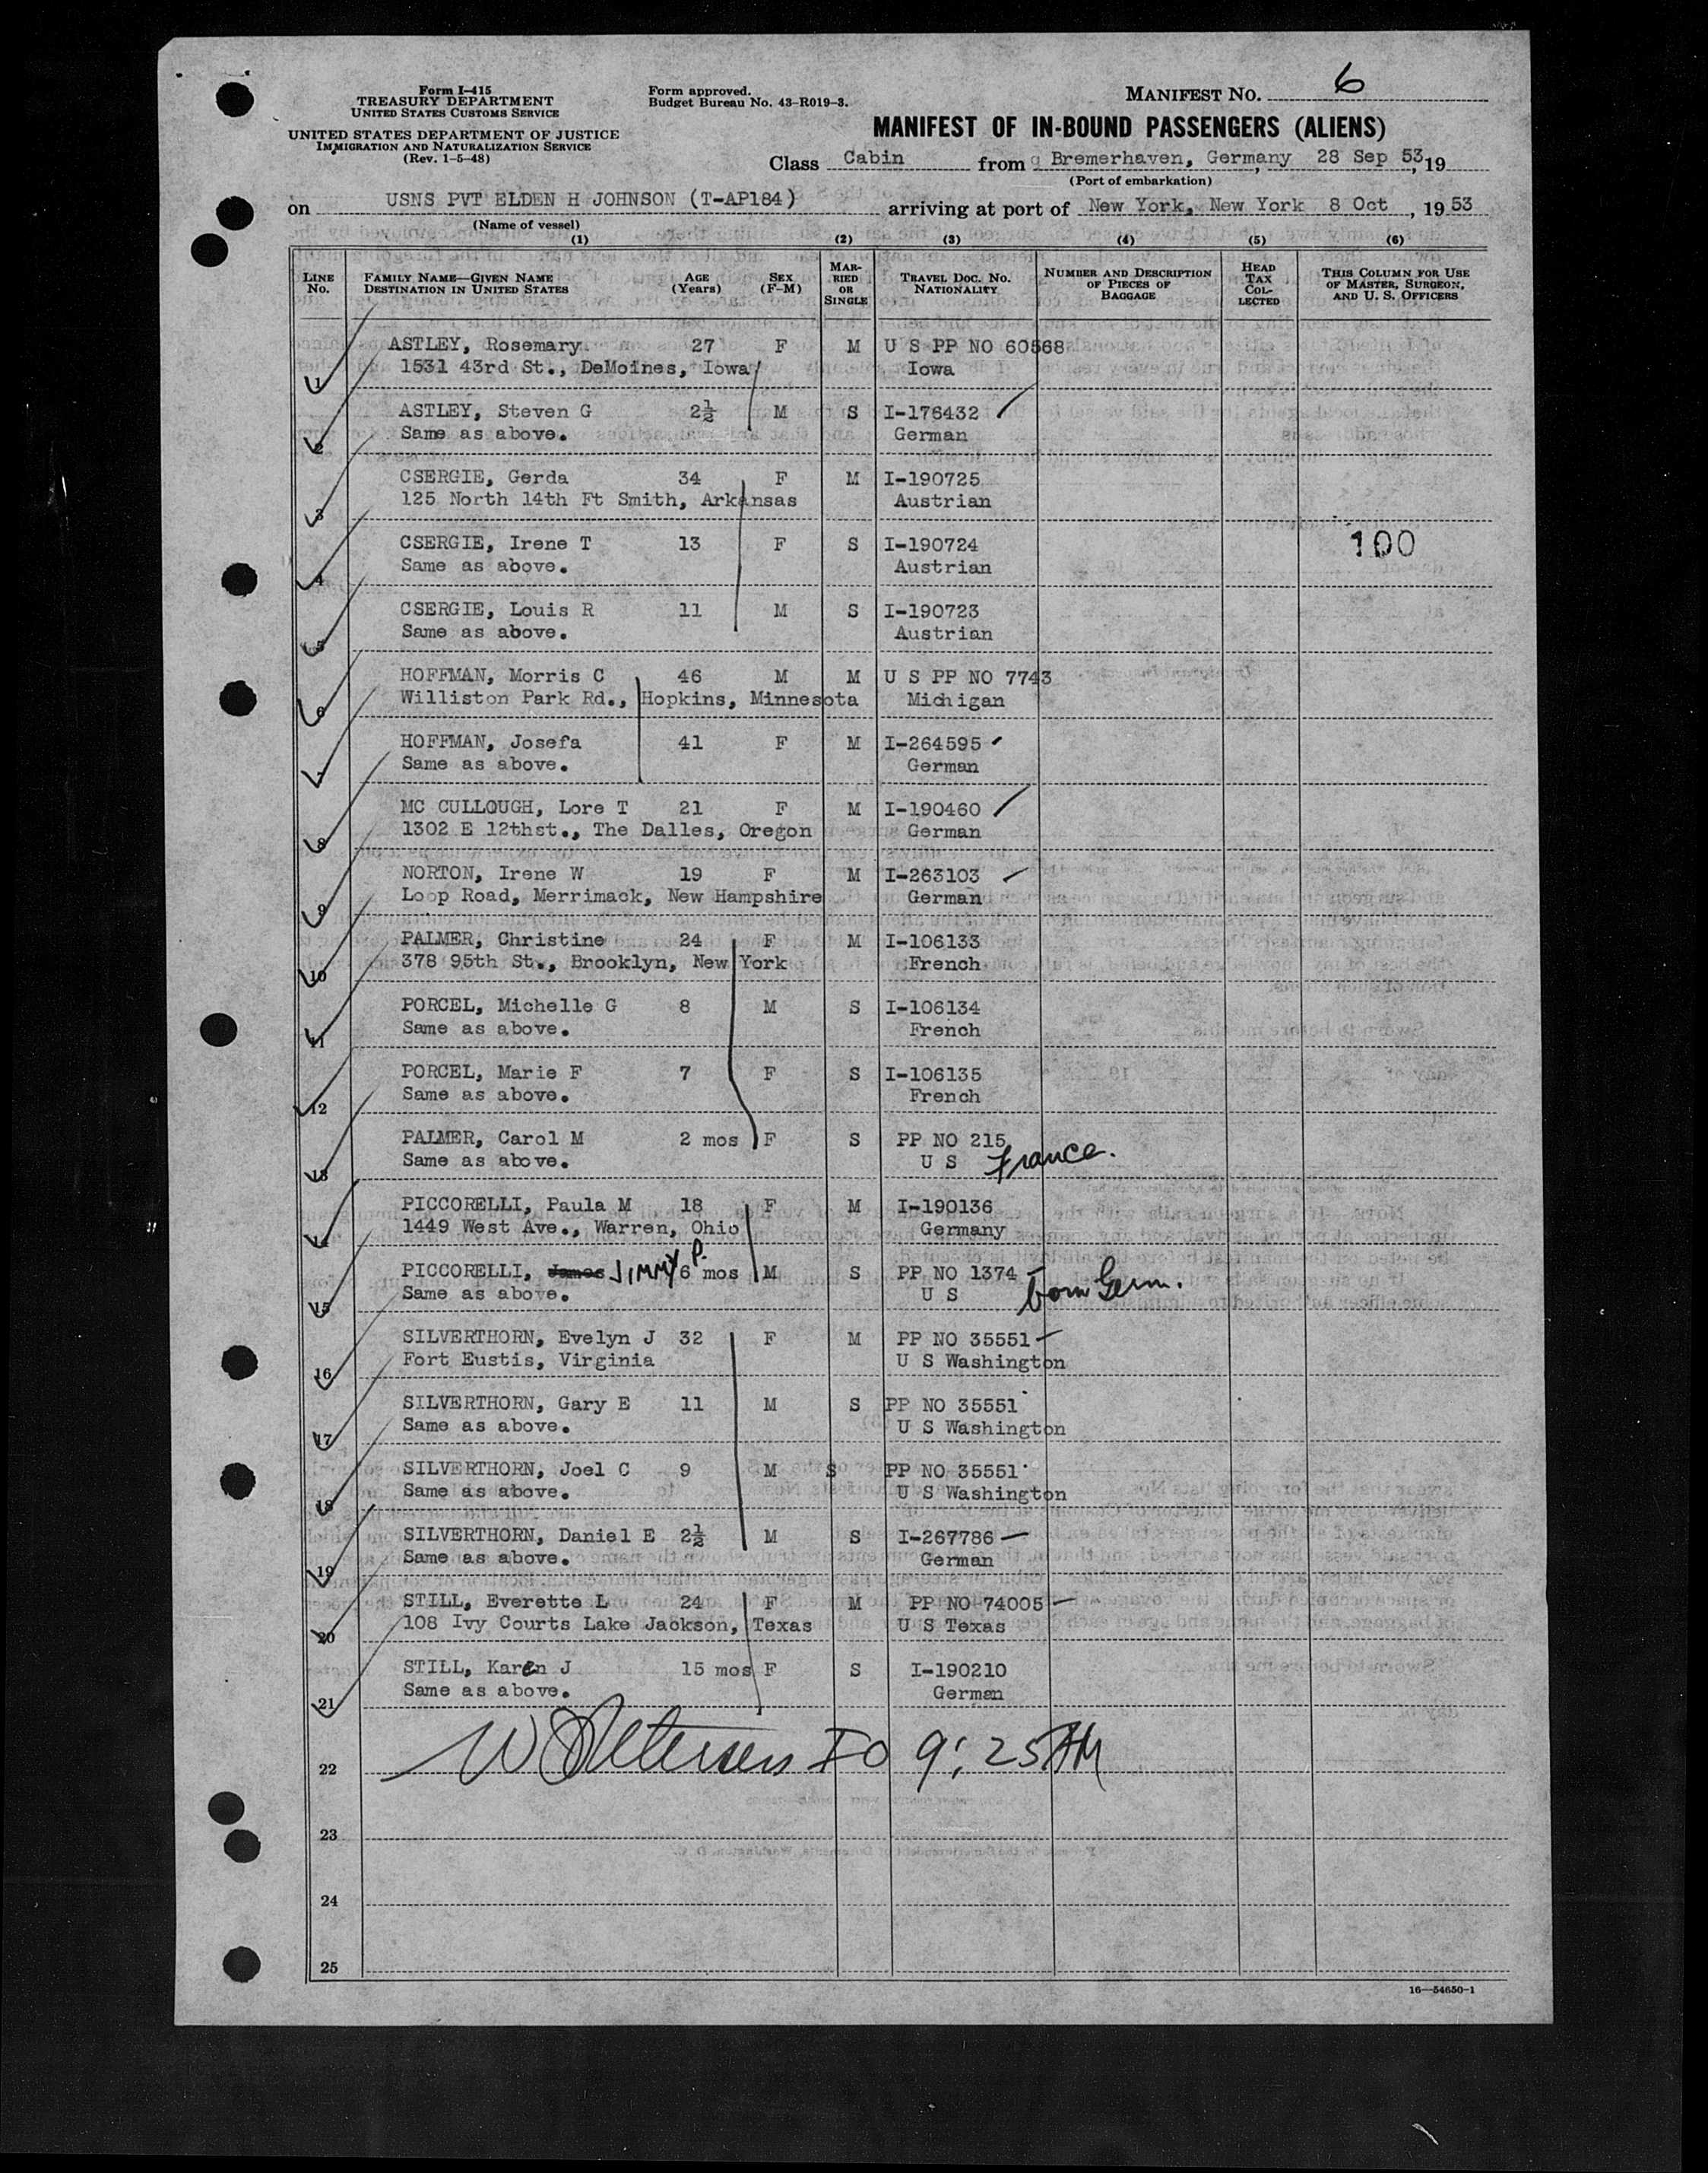 Form I-415
TREASURY DEPARTMENT
UNITED STATES CUSTOMS SERVICE
UNITED STATES DEPARTMENT OF JUSTICE
IMMIGRATION AND NATURALIZATION SERVICE
(Rev. 1-5-48)
Form approved.
Budget Bureau No. 43-R019-3.
MANIFEST NO. 6
MANIFEST OF IN-BOUND PASSENGERS (ALIENS)
Class Cabin from Bremerhaven, Germany 28 Sep 53, 19
(Port of embarkation)
on USNS PVT ELDEN H JOHNSON (T-AP184) arriving at port of New York, New York 8 Oct, 1953
(Name of vessel)
(1) (2) (3) (4) (5) (6)
LINE No. FAMILY NAME—GIVEN NAME DESTINATION IN UNITED STATES AGE (Years) SEX (F-M) MARRIED OR SINGLE TRAVEL DOC. NO. NATIONALITY NUMBER AND DESCRIPTION OF PIECES OF BAGGAGE HEAD TAX COLLECTED THIS COLUMN FOR USE OF MASTER, SURGEON, AND U. S. OFFICERS
ASTLEY, Rosemary 27 F M U S PP NO 60568
1 1531 43rd St., DeMoines, Iowa Iowa
ASTLEY, Steven G 2½ M S I-176432
2 Same as above. German
CSERGIE, Gerda 34 F M I-190725
3 125 North 14th Ft Smith, Arkansas Austrian
CSERGIE, Irene T 13 F S I-190724 100
4 Same as above. Austrian
CSERGIE, Louis R 11 M S I-190723
5 Same as above. Austrian
HOFFMAN, Morris C 46 M M U S PP NO 7743
6 Williston Park Rd., Hopkins, Minnesota Michigan
HOFFMAN, Josefa 41 F M I-264595
7 Same as above. German
MC CULLOUGH, Lore T 21 F M I-190460
8 1302 E 12thst., The Dalles, Oregon German
NORTON, Irene W 19 F M I-263103
9 Loop Road, Merrimack, New Hampshire German
PALMER, Christine 24 F M I-106133
10 378 95th St., Brooklyn, New York French
PORCEL, Michelle G 8 M S I-106134
11 Same as above. French
PORCEL, Marie F 7 F S I-106135
12 Same as above. French
PALMER, Carol M 2 mos F S PP NO 215
13 Same as above. U S France.
PICCORELLI, Paula M 18 F M I-190136
14 1449 West Ave., Warren, Ohio Germany
PICCORELLI, James JIMMY P. 6 mos M S PP NO 1374
15 Same as above. U S born Germ.
SILVERTHORN, Evelyn J 32 F M PP NO 35551
16 Fort Eustis, Virginia U S Washington
SILVERTHORN, Gary E 11 M S PP NO 35551
17 Same as above. U S Washington
SILVERTHORN, Joel C 9 M S PP NO 35551
18 Same as above. U S Washington
SILVERTHORN, Daniel E 2½ M S I-267786
19 Same as above. German
STILL, Everette L 24 F M PP NO 74005
20 108 Ivy Courts Lake Jackson, Texas U S Texas
STILL, Karen J 15 mos F S I-190210
21 Same as above. German
22 9:25 AM
23
24
25
16—54650-1